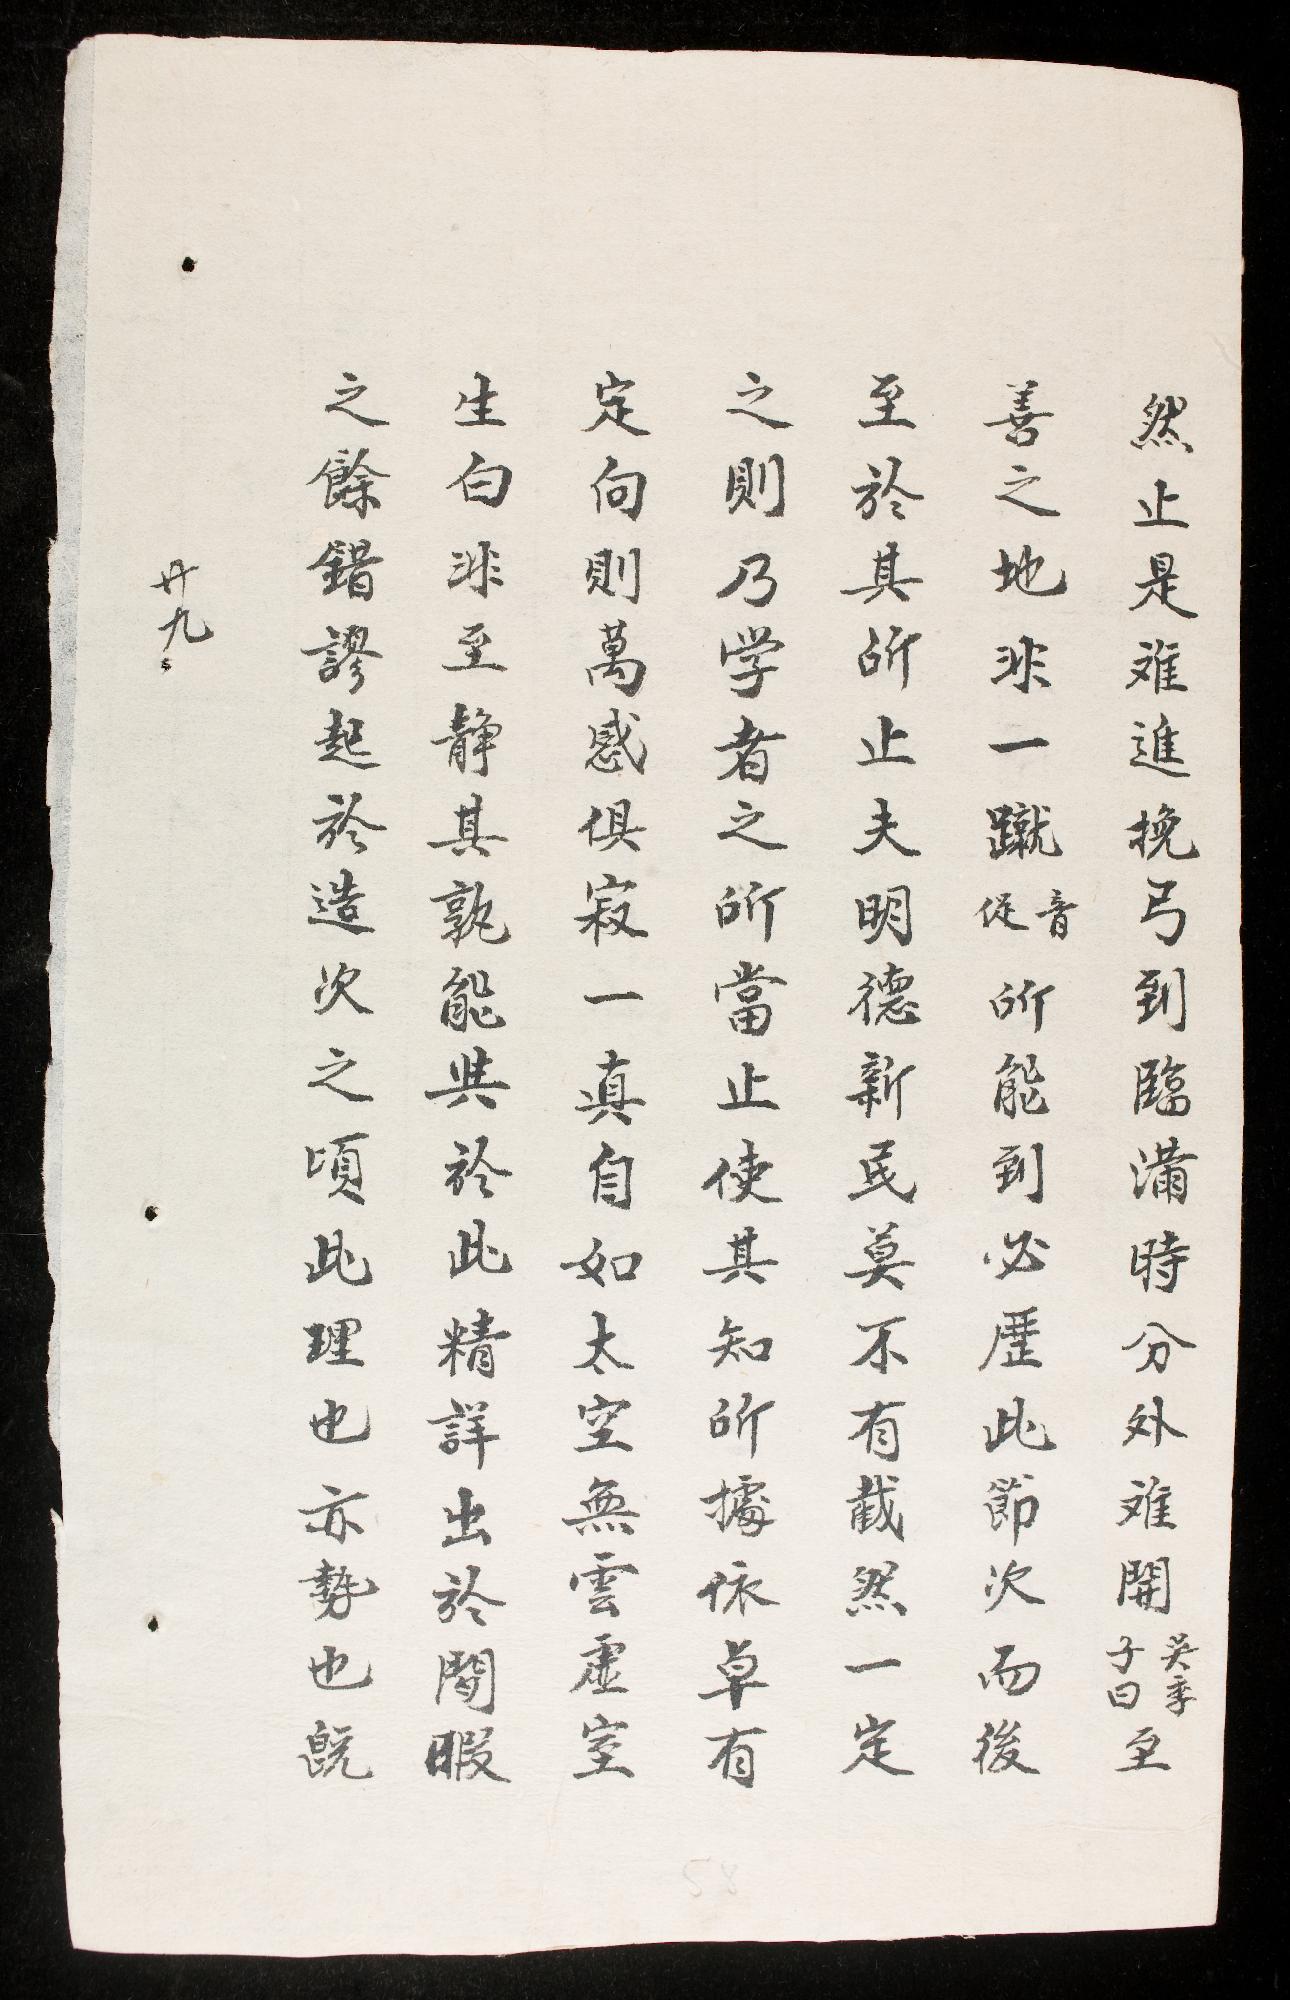 然止是难進挽弓到臨滿時分外难開吳季子曰至
善之地非一蹴音促所能到必歷此節次而後
至於其所止夫明德新民莫不有截然一定
之則乃学者之所當止使其知所據依卓有
定向則萬感俱寂一真自如太空無雲虛室
生白非至静其孰能與於此精詳出於閒暇
之餘錯謬起於造次之頃此理也亦勢也既
廿九
58